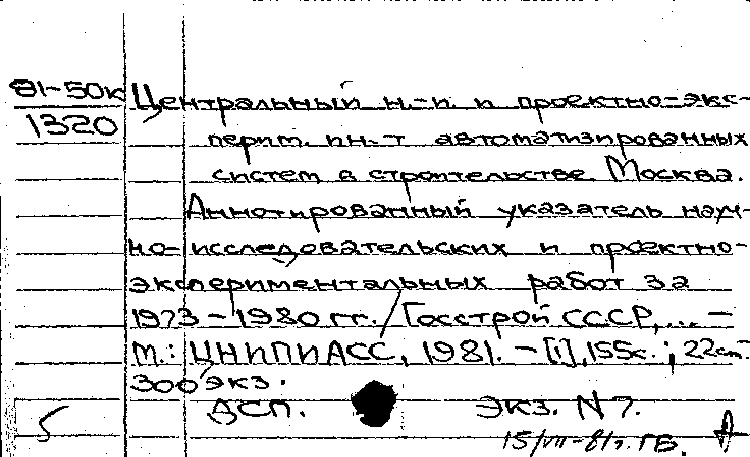 81-50к
1320
Центральный н.-и. и проектно-экс-
перим. ин.-т автоматизированных
систем в строительстве. Москва.
Аннотированный указатель науч-
но-исследовательских и проектно-
экспериментальных работ за
1973-1980 гг. / Госстрой СССР, ... -
М.: ЦНИПИАСС, 1981. - [1], 155с.; 22см.
300 экз.
ДСП. экз. N 7.
5
15/VII-81г. ГБ.